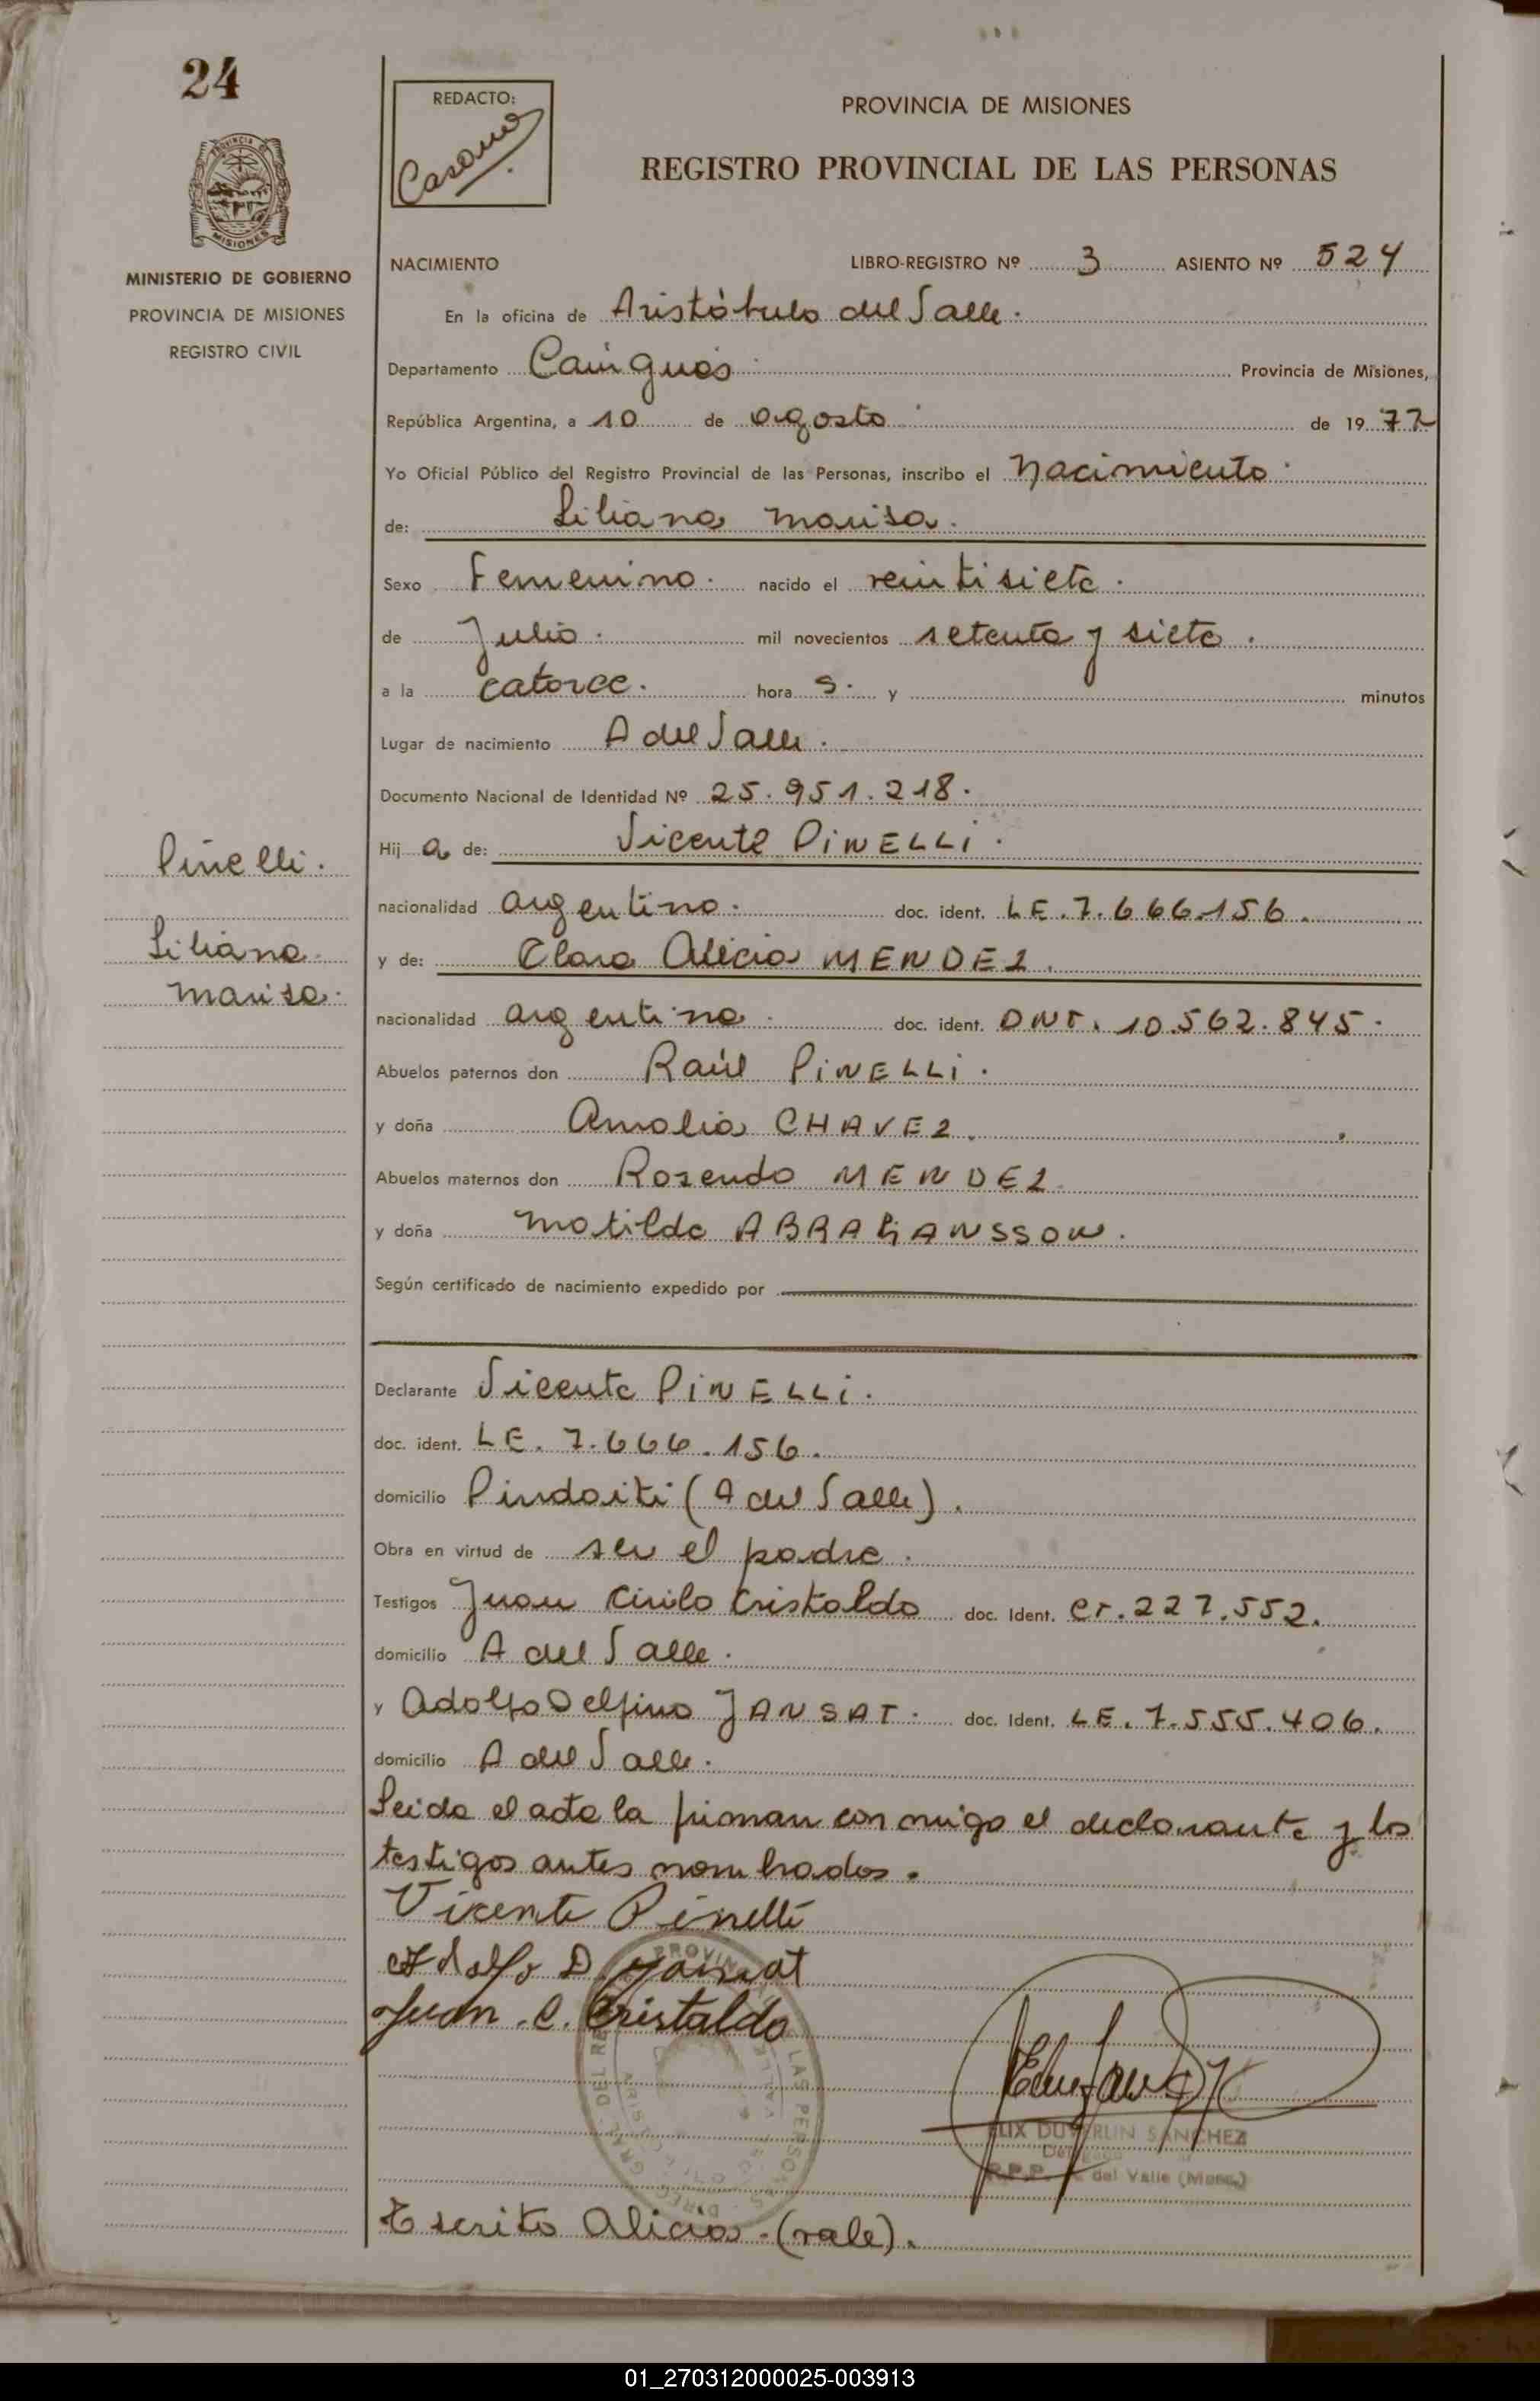 24
REDACTO:
PROVINCIA DE MISIONES
REGISTRO PROVINCIAL DE LAS PERSONAS
PROVINCIA DE
MISIONES
MINISTERIO DE GOBIERNO
PROVINCIA DE MISIONES
REGISTRO CIVIL
NACIMIENTO LIBRO-REGISTRO Nº 3 ASIENTO Nº 524
En la oficina de Aristóbulo del Valle.
Departamento Cainguás Provincia de Misiones,
República Argentina, a 10 de agosto de 1977
Yo Oficial Público del Registro Provincial de las Personas, inscribo el Nacimiento.
de: Liliana Marisa.
Sexo Femenino. nacido el veintisiete.
de Julio. mil novecientos setenta y siete.
a la catorce. hora s. y minutos
Lugar de nacimiento A del Valle.
Documento Nacional de Identidad Nº 25.951.218.
Pinelli.
Liliana
Marisa.
Hij a de: Vicente PiNELLi.
nacionalidad argentino. doc. ident. LE.7.666.156.
y de: Clara Alicia MENDEZ.
nacionalidad argentina. doc. ident. DNI. 10.562.845.
Abuelos paternos don Raúl PiNELLi.
y doña Amalia CHAVEZ.
Abuelos maternos don Rosendo MENDEZ
y doña Matilde ABRAHANSSON.
Según certificado de nacimiento expedido por
Declarante Vicente PiNELLi.
doc. ident. LE. 7.666.156.
domicilio Pindaiti (A del Valle).
Obra en virtud de ser el padre.
Testigos Juan Cirilo Cristaldo doc. Ident. CI.227.552.
domicilio A del Valle.
y Adolfo Delfino JANSAT. doc. Ident. LE.7.555.406.
domicilio A del Valle.
Leida el acta la firman con migo el declarante y los
testigos antes nombrados.
Vicente Pinelli
Adolfo D. Jansat
Juan C. Cristaldo
SANCHEZ
R.P.P. A. del Valle
Escrito Alicia. (vale).
01_270312000025-003913